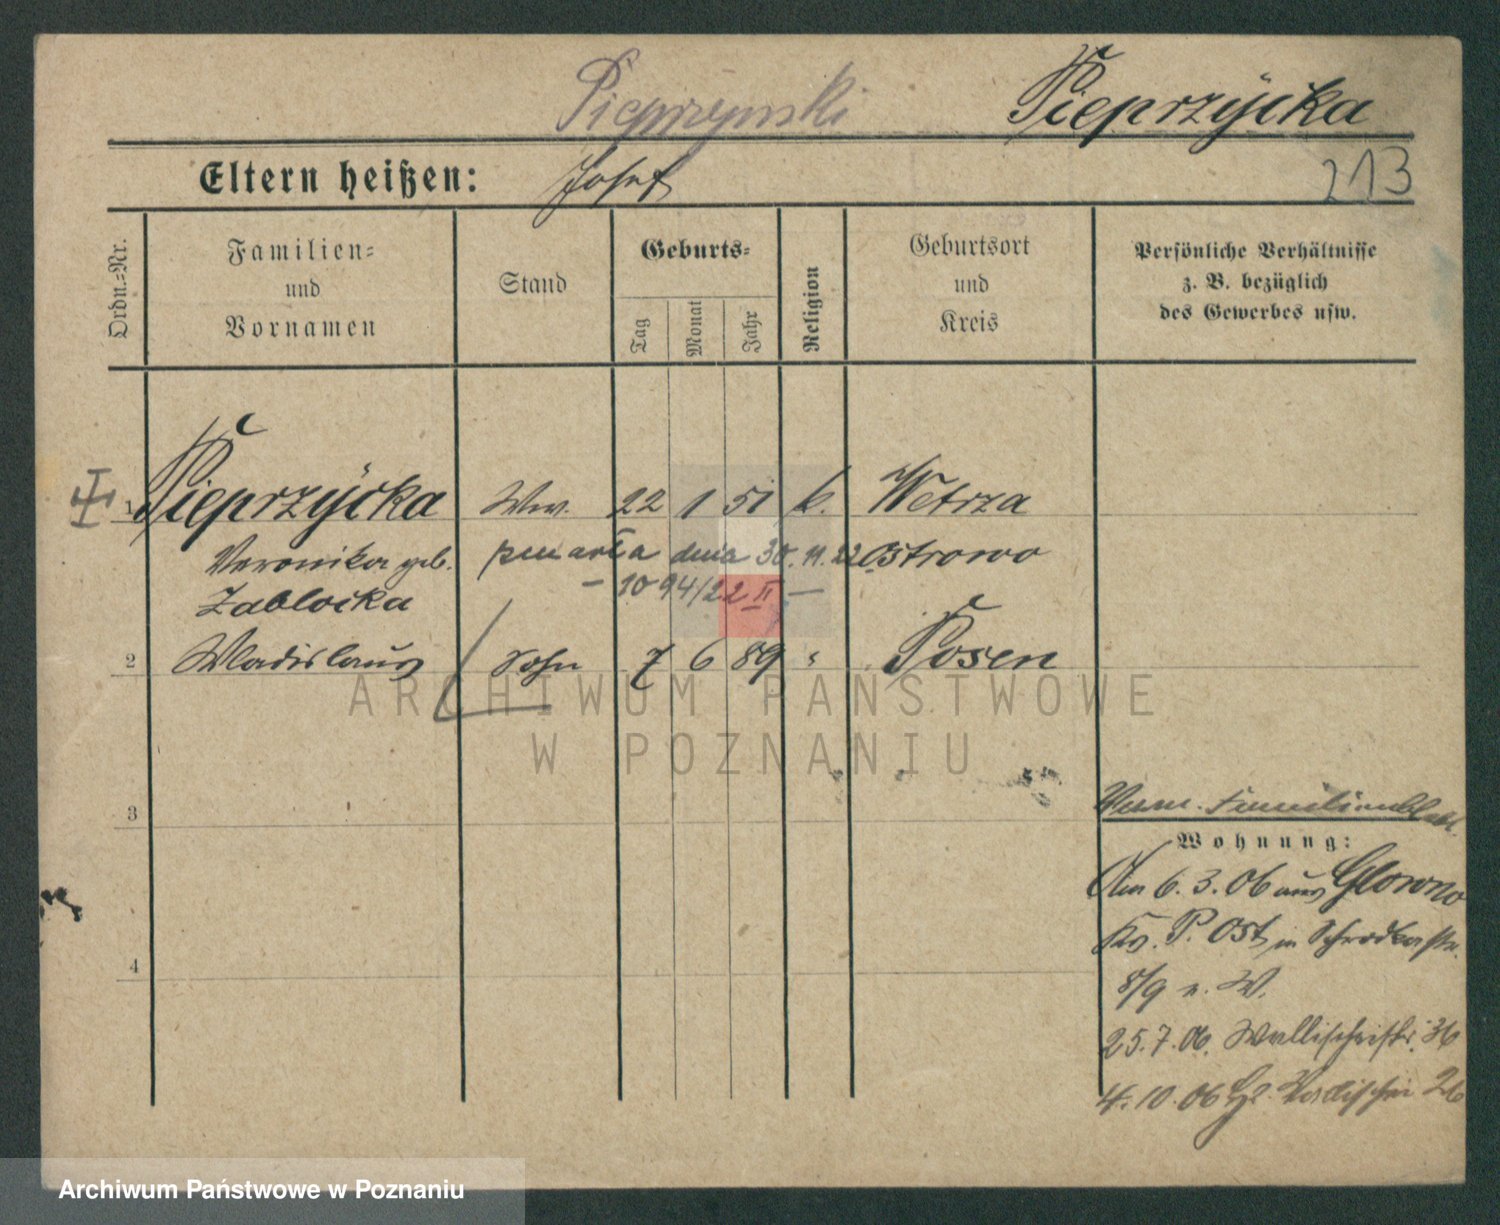 Pieprzynski Pieprzÿcka
Eltern heißen: Josef 213
Ordn.-Nr.
Familien- und Vornamen
Stand
Geburts-
Tag Monat Jahr
Religion
Geburtsort und Kreis
Persönliche Verhältnisse
z. B. bezüglich
des Gewerbes usw.
1 Pieprzÿcka Ww. 22 1 51 k. Wetrza
Veronika geb. zmarła dnia 30.11.22 Ostrowo
Zablocka – 1094/22 II –
2 Wladislaus Sohn 7 6 89 " Posen
3
Familienblatt
Wohnung:
Am 6.3.06 aus Glowno
Kr. P. Ost in Schrodkastr.
4
8/9 v. W.
25.7.06. Wallischeistr. 36
4.10.06 Wallischei 26
ARCHIWUM PAŃSTWOWE
W POZNANIU
Archiwum Państwowe w Poznaniu